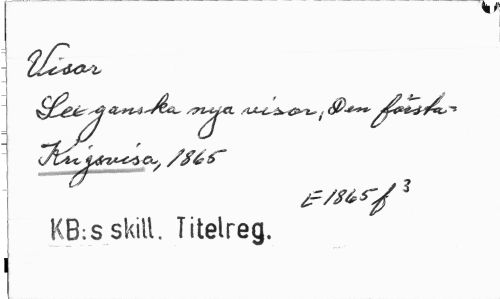 Visor
Sex ganska nya visor, Den första=
Krigsvisa, 1865
E 1865 f 3
KB:s skill. Titelreg.